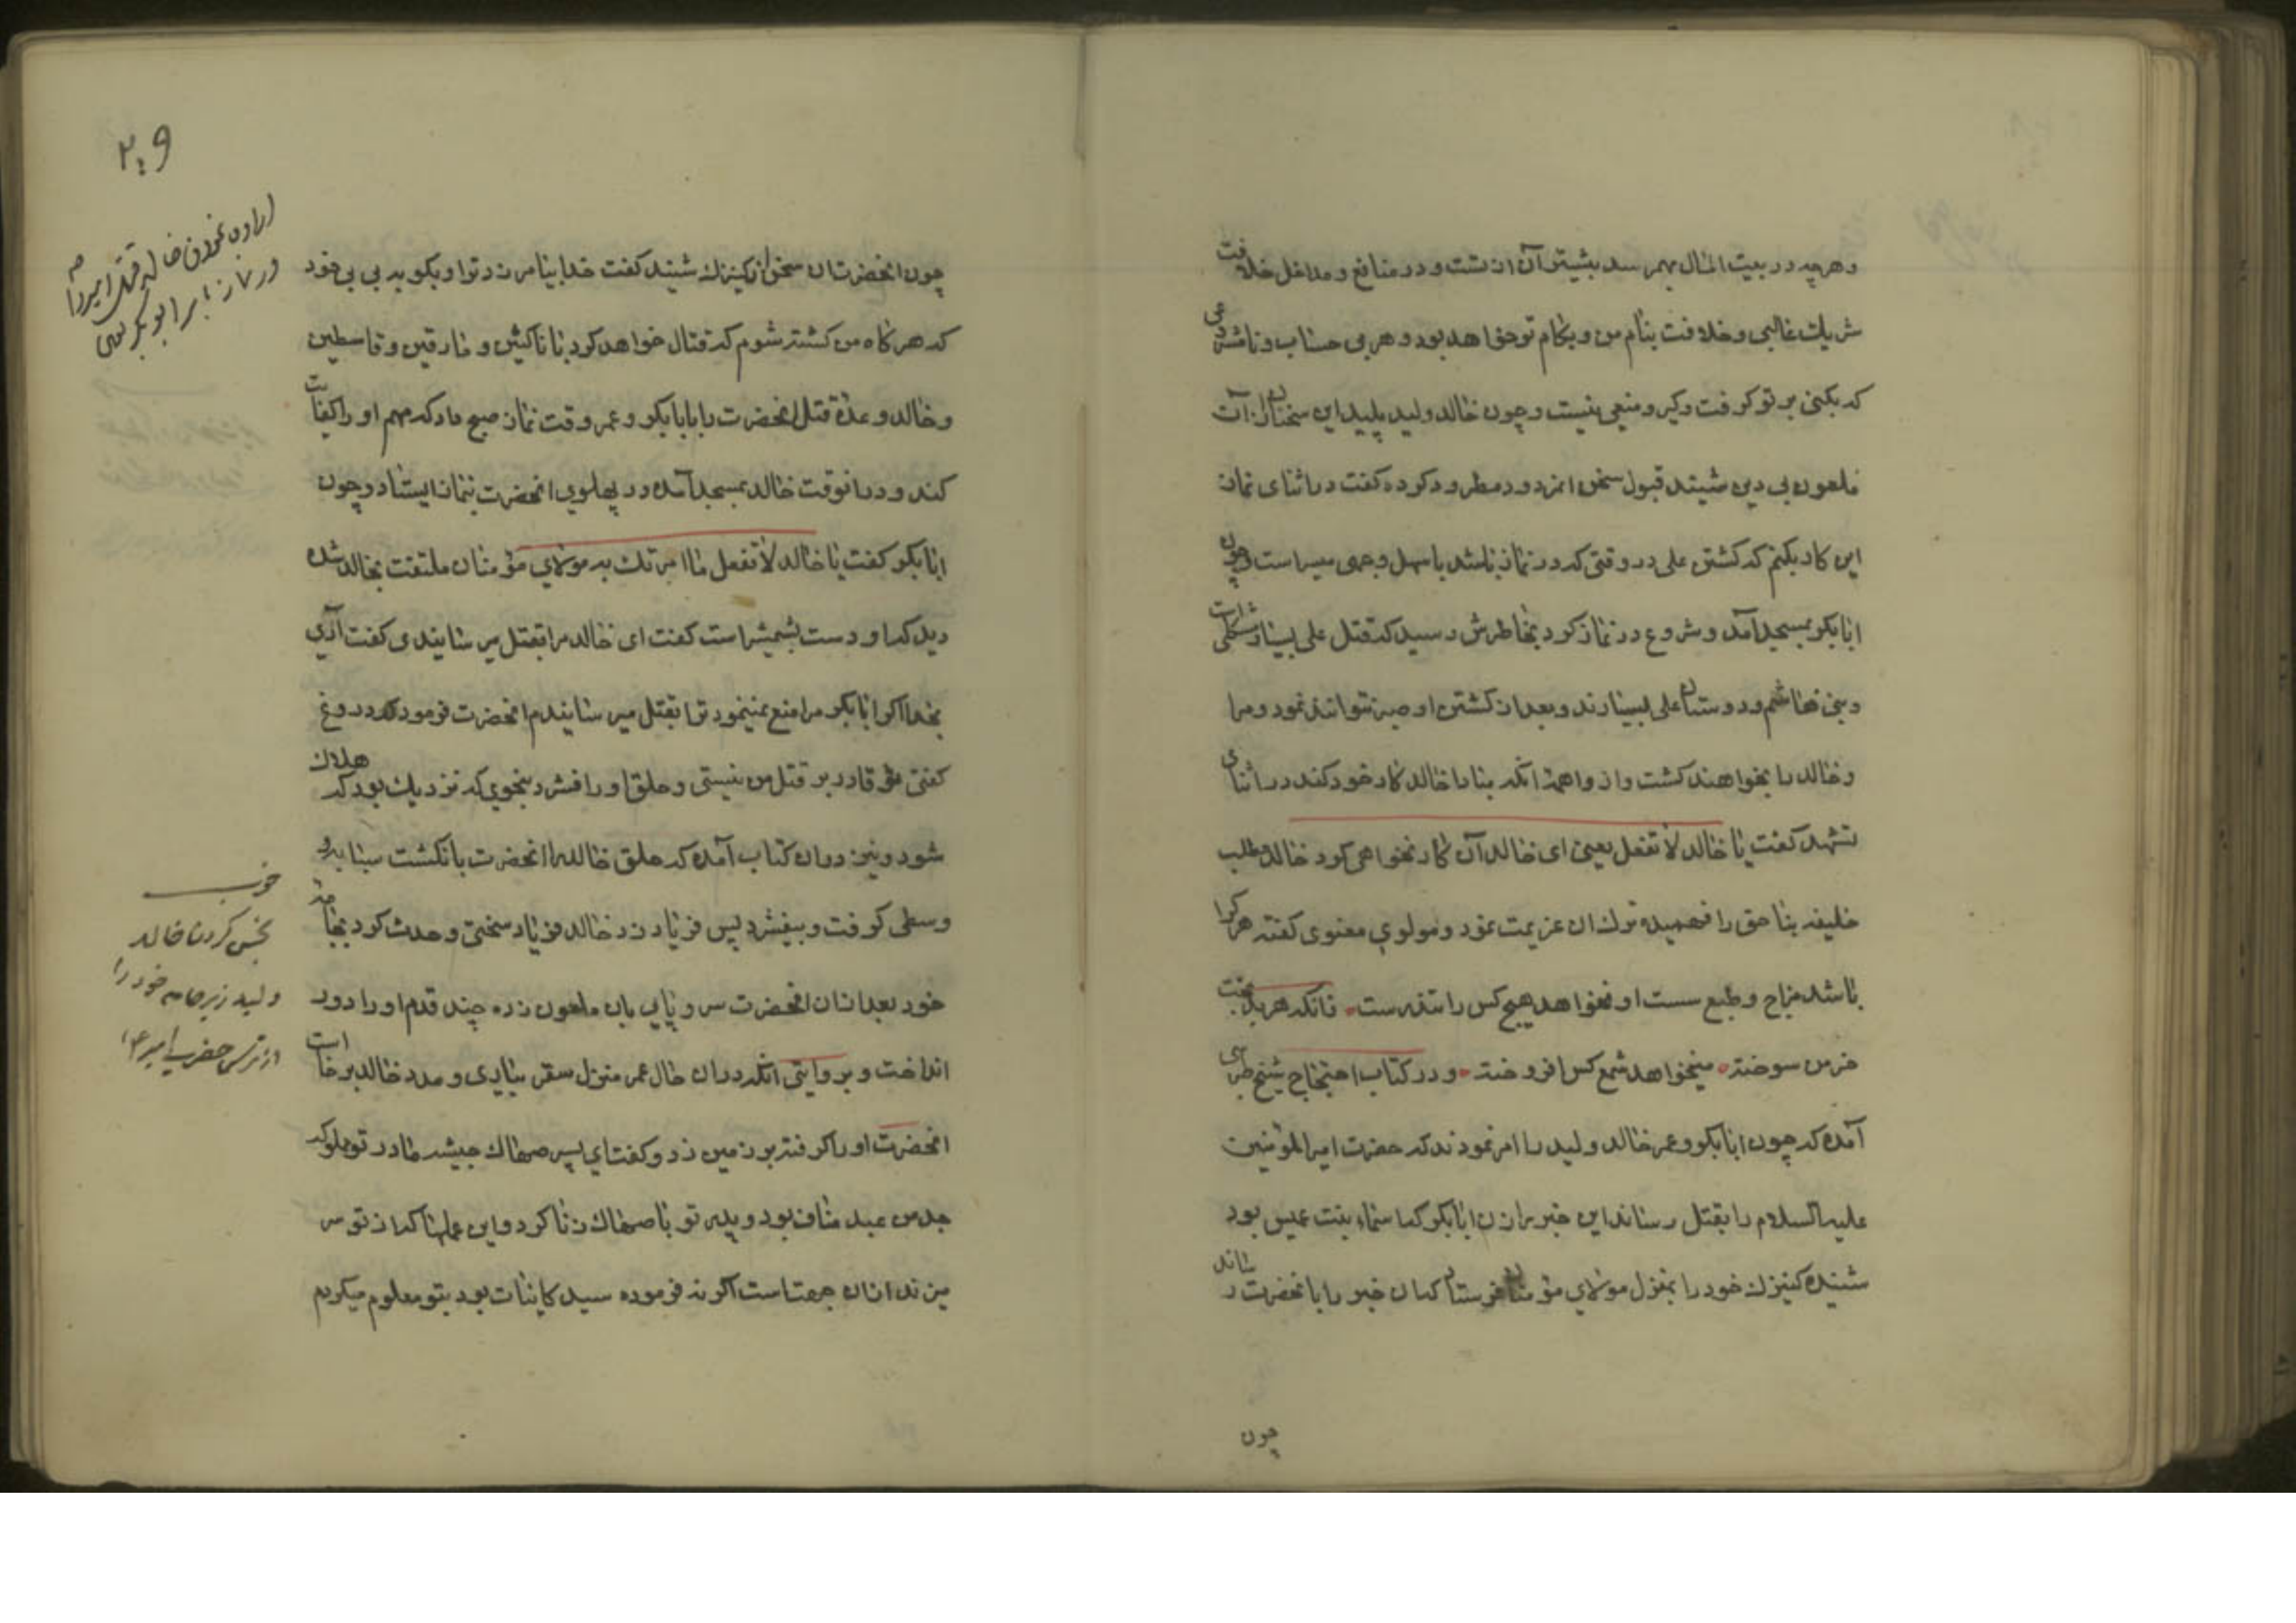 وهرچه در بیت المال بهم رسد بیشتر آن از تست و در منافع و مداخل خلافت
شریک غالبی و خلافت بنام من و بکام تو خواهد بود و هر بی حساب و نامشروعی
که بکنی بر تو گرفت و گیر و منعی نیست و چون خالد ولید پلید این سخنان از آن
ملعون بی دین شنید قبول سخن آن مردود مطرود کرده گفت در اثنای نماز
این کار بکنم که کشتن علی در وقتی که در نماز باشد باسهل وجهی میسر است و چون
ابابکر بمسجد آمد و شروع در نماز کرد بخاطرش رسید که قتل علی بسیار مشکل است
و بنی هاشم و دوستان علی بسیارند و بعد از کشتن او صبر نتوانند نمود و مرا
و خالد را بخواهند کشت و از واهمه آنکه مبادا خالد کار خود کند در اثنای
تشهد گفت یا خالد لا تفعل یعنی ای خالد آن کار نخواهی کرد خالد مطلب
خلیفه بناحق را فهمیده ترک آن عزیمت نمود و مولوی معنوی گفته هر کرا
باشد مزاج و طبع سست او نخواهد هیچ کس را تندرست زانکه هر بدبخت
خرمن سوخته میخواهد شمع کس افروخته و در کتاب احتجاج شیخ طبرسی
آمده که چون ابابکر و عمر خالد ولید را امر نمودند که حضرت امیرالمؤمنین
علیه السلام را بقتل رساند این خبر را زن ابابکر که اسماء بنت عمیس بود
شنیده کنیزک خود را بمنزل مولای مؤمنان فرستاد که آن خبر را بآنحضرت رساند
چون
۲۰۹
اراده نمودن خالد قتل امیر را
در نماز بامر ابوبکر
چون آنحضرت آن سخن از کنیزک شنید گفت خدا بیامرزد ترا و بگو به بی بی خود
که هرگاه من کشته شوم که قتال خواهد کرد با ناکثین و مارقین و قاسطین
و خالد وعده قتل آنحضرت را با ابابکر و عمر وقت نماز صبح داد که مهم او را کفایت
کند و در آنوقت خالد بمسجد آمده در پهلوی آنحضرت بنماز ایستاد و چون
ابابکر گفت یا خالد لا تفعل ما امرتک به مولای مؤمنان ملتفت بخالد شده
دید که او دست بشمشیر است گفت ای خالد مرا بقتل میرسانیدی گفت آری
بخدا اگر ابابکر مرا منع نمینمود ترا بقتل میرسانیدم آنحضرت فرمود که دروغ
گفتی تو قادر بر قتل من نیستی و حلق او را فشرد بنحوی که نزدیک بود که هلاک
شود و نیز در آن کتاب آمده که حلق خالد را آنحضرت بانگشت سبابه و
وسطی گرفت و بیفشرد پس فریاد زد خالد فریاد سختی و حدث کرد بجامه
خود بعد از آن آنحضرت سر و پایی بآن ملعون زده چند قدم او را دور
انداخت و بروایتی آنکه در آن حال عمر منزل سقر بیاری و مدد خالد برخاست
آنحضرت او را گرفته بر زمین زد و گفت ای پسر صهاک حبشیه مادر تو مملوکه
جد من عبد مناف بود و پدر تو با صهاک زنا کرد و این عملها که از تو سر
میزند از آن جهت است اگر نه فرموده سید کاینات بود بتو معلوم میکردم
خوب
نجس کردن خالد
ولید زیر جامه خود را
از ترس حضرت امیر ع